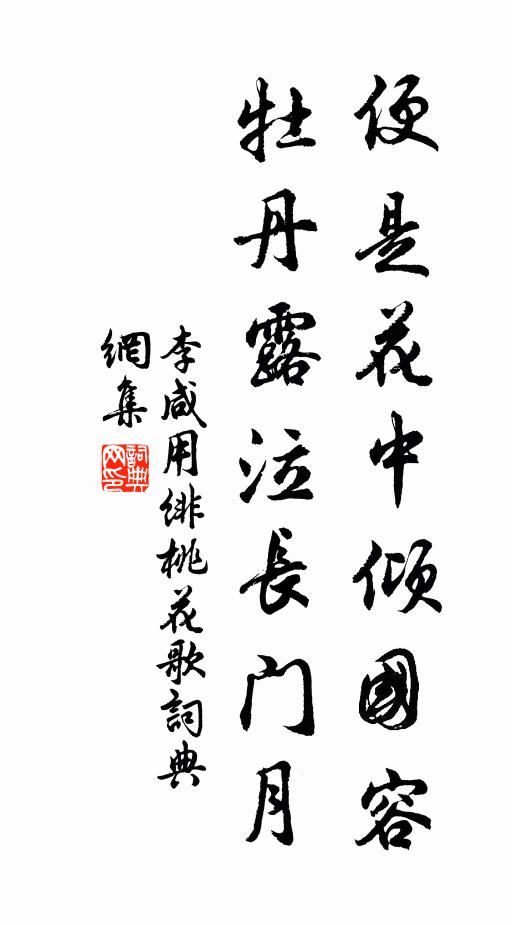 便是花中傾國容
牡丹露泣長門月
李咸用緋桃花歌詞典
網集
詞典
网印